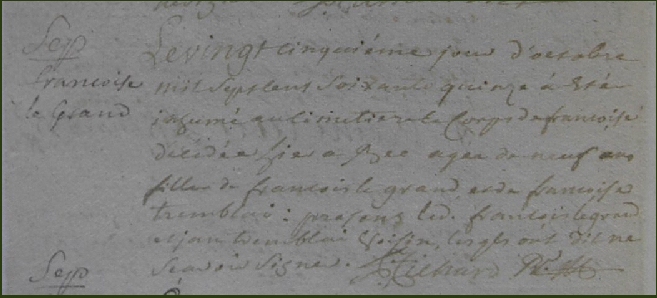 Sep
francoise
le Grand
Le vingt cinquiéme jour d'octobre
mil Sept Cent Soixante quinze à Eté
inhumé au Cimetiere le Corps de francoise
décédée hier agée de neuf ans
fille de francois le grand et de francoise
tremblai : presens led. francois le grand
et jan tremblai Voisin, lesqls ont dit ne
Scavoir Signer. Richard
Sep